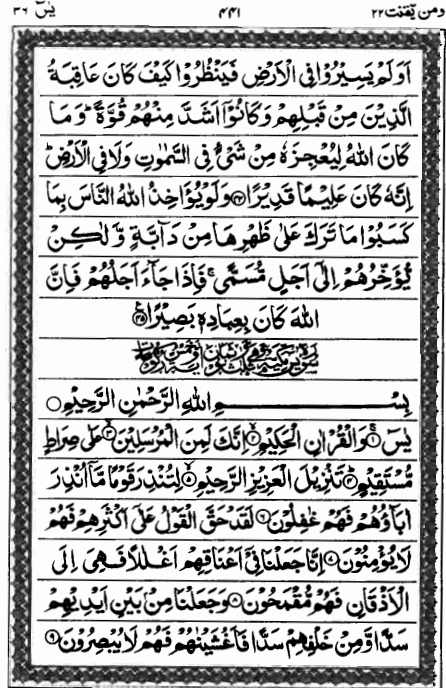 یٰسٓ ۳۶ ۴۴۱ ومن یقنت ۲۲
اَوَلَمْ یَسِیْرُوْا فِی الْاَرْضِ فَیَنْظُرُوْا کَیْفَ کَانَ عَاقِبَةُ
الَّذِیْنَ مِنْ قَبْلِهِمْ وَکَانُوْۤا اَشَدَّ مِنْهُمْ قُوَّةً ؕ وَمَا
کَانَ اللّٰهُ لِیُعْجِزَهٗ مِنْ شَیْءٍ فِی السَّمٰوٰتِ وَلَا فِی الْاَرْضِ ؕ
اِنَّهٗ کَانَ عَلِیْمًا قَدِیْرًا ﴿۴۴﴾ وَلَوْ یُؤَاخِذُ اللّٰهُ النَّاسَ بِمَا
کَسَبُوْا مَا تَرَكَ عَلٰی ظَهْرِهَا مِنْ دَآبَّةٍ وَّلٰکِنْ
یُّؤَخِّرُهُمْ اِلٰۤی اَجَلٍ مُّسَمًّی ۚ فَاِذَا جَآءَ اَجَلُهُمْ فَاِنَّ
اللّٰهَ کَانَ بِعِبَادِهٖ بَصِیْرًا ﴿۴۵﴾
بِسْمِ اللّٰهِ الرَّحْمٰنِ الرَّحِیْمِ
یٰسٓ ﴿۱﴾ وَالْقُرْاٰنِ الْحَکِیْمِ ﴿۲﴾ اِنَّكَ لَمِنَ الْمُرْسَلِیْنَ ﴿۳﴾ عَلٰی صِرَاطٍ
مُّسْتَقِیْمٍ ﴿۴﴾ تَنْزِیْلَ الْعَزِیْزِ الرَّحِیْمِ ﴿۵﴾ لِتُنْذِرَ قَوْمًا مَّاۤ اُنْذِرَ
اٰبَآؤُهُمْ فَهُمْ غٰفِلُوْنَ ﴿۶﴾ لَقَدْ حَقَّ الْقَوْلُ عَلٰۤی اَکْثَرِهِمْ فَهُمْ
لَا یُؤْمِنُوْنَ ﴿۷﴾ اِنَّا جَعَلْنَا فِیْۤ اَعْنَاقِهِمْ اَغْلٰلًا فَهِیَ اِلَی
الْاَذْقَانِ فَهُمْ مُّقْمَحُوْنَ ﴿۸﴾ وَجَعَلْنَا مِنْۢ بَیْنِ اَیْدِیْهِمْ
سَدًّا وَّمِنْ خَلْفِهِمْ سَدًّا فَاَغْشَیْنٰهُمْ فَهُمْ لَا یُبْصِرُوْنَ ﴿۹﴾